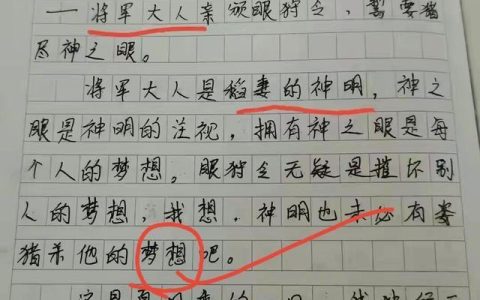 ——将军大人亲颁眼狩令，誓要猪
尽神之眼。
将军大人是稻妻的神明，神之
眼是神明的注视，拥有神之眼是每
个人的梦想。眼狩令无疑是摧坏别
人的梦想，我想，神明也未必有要
猪杀他的梦想吧。